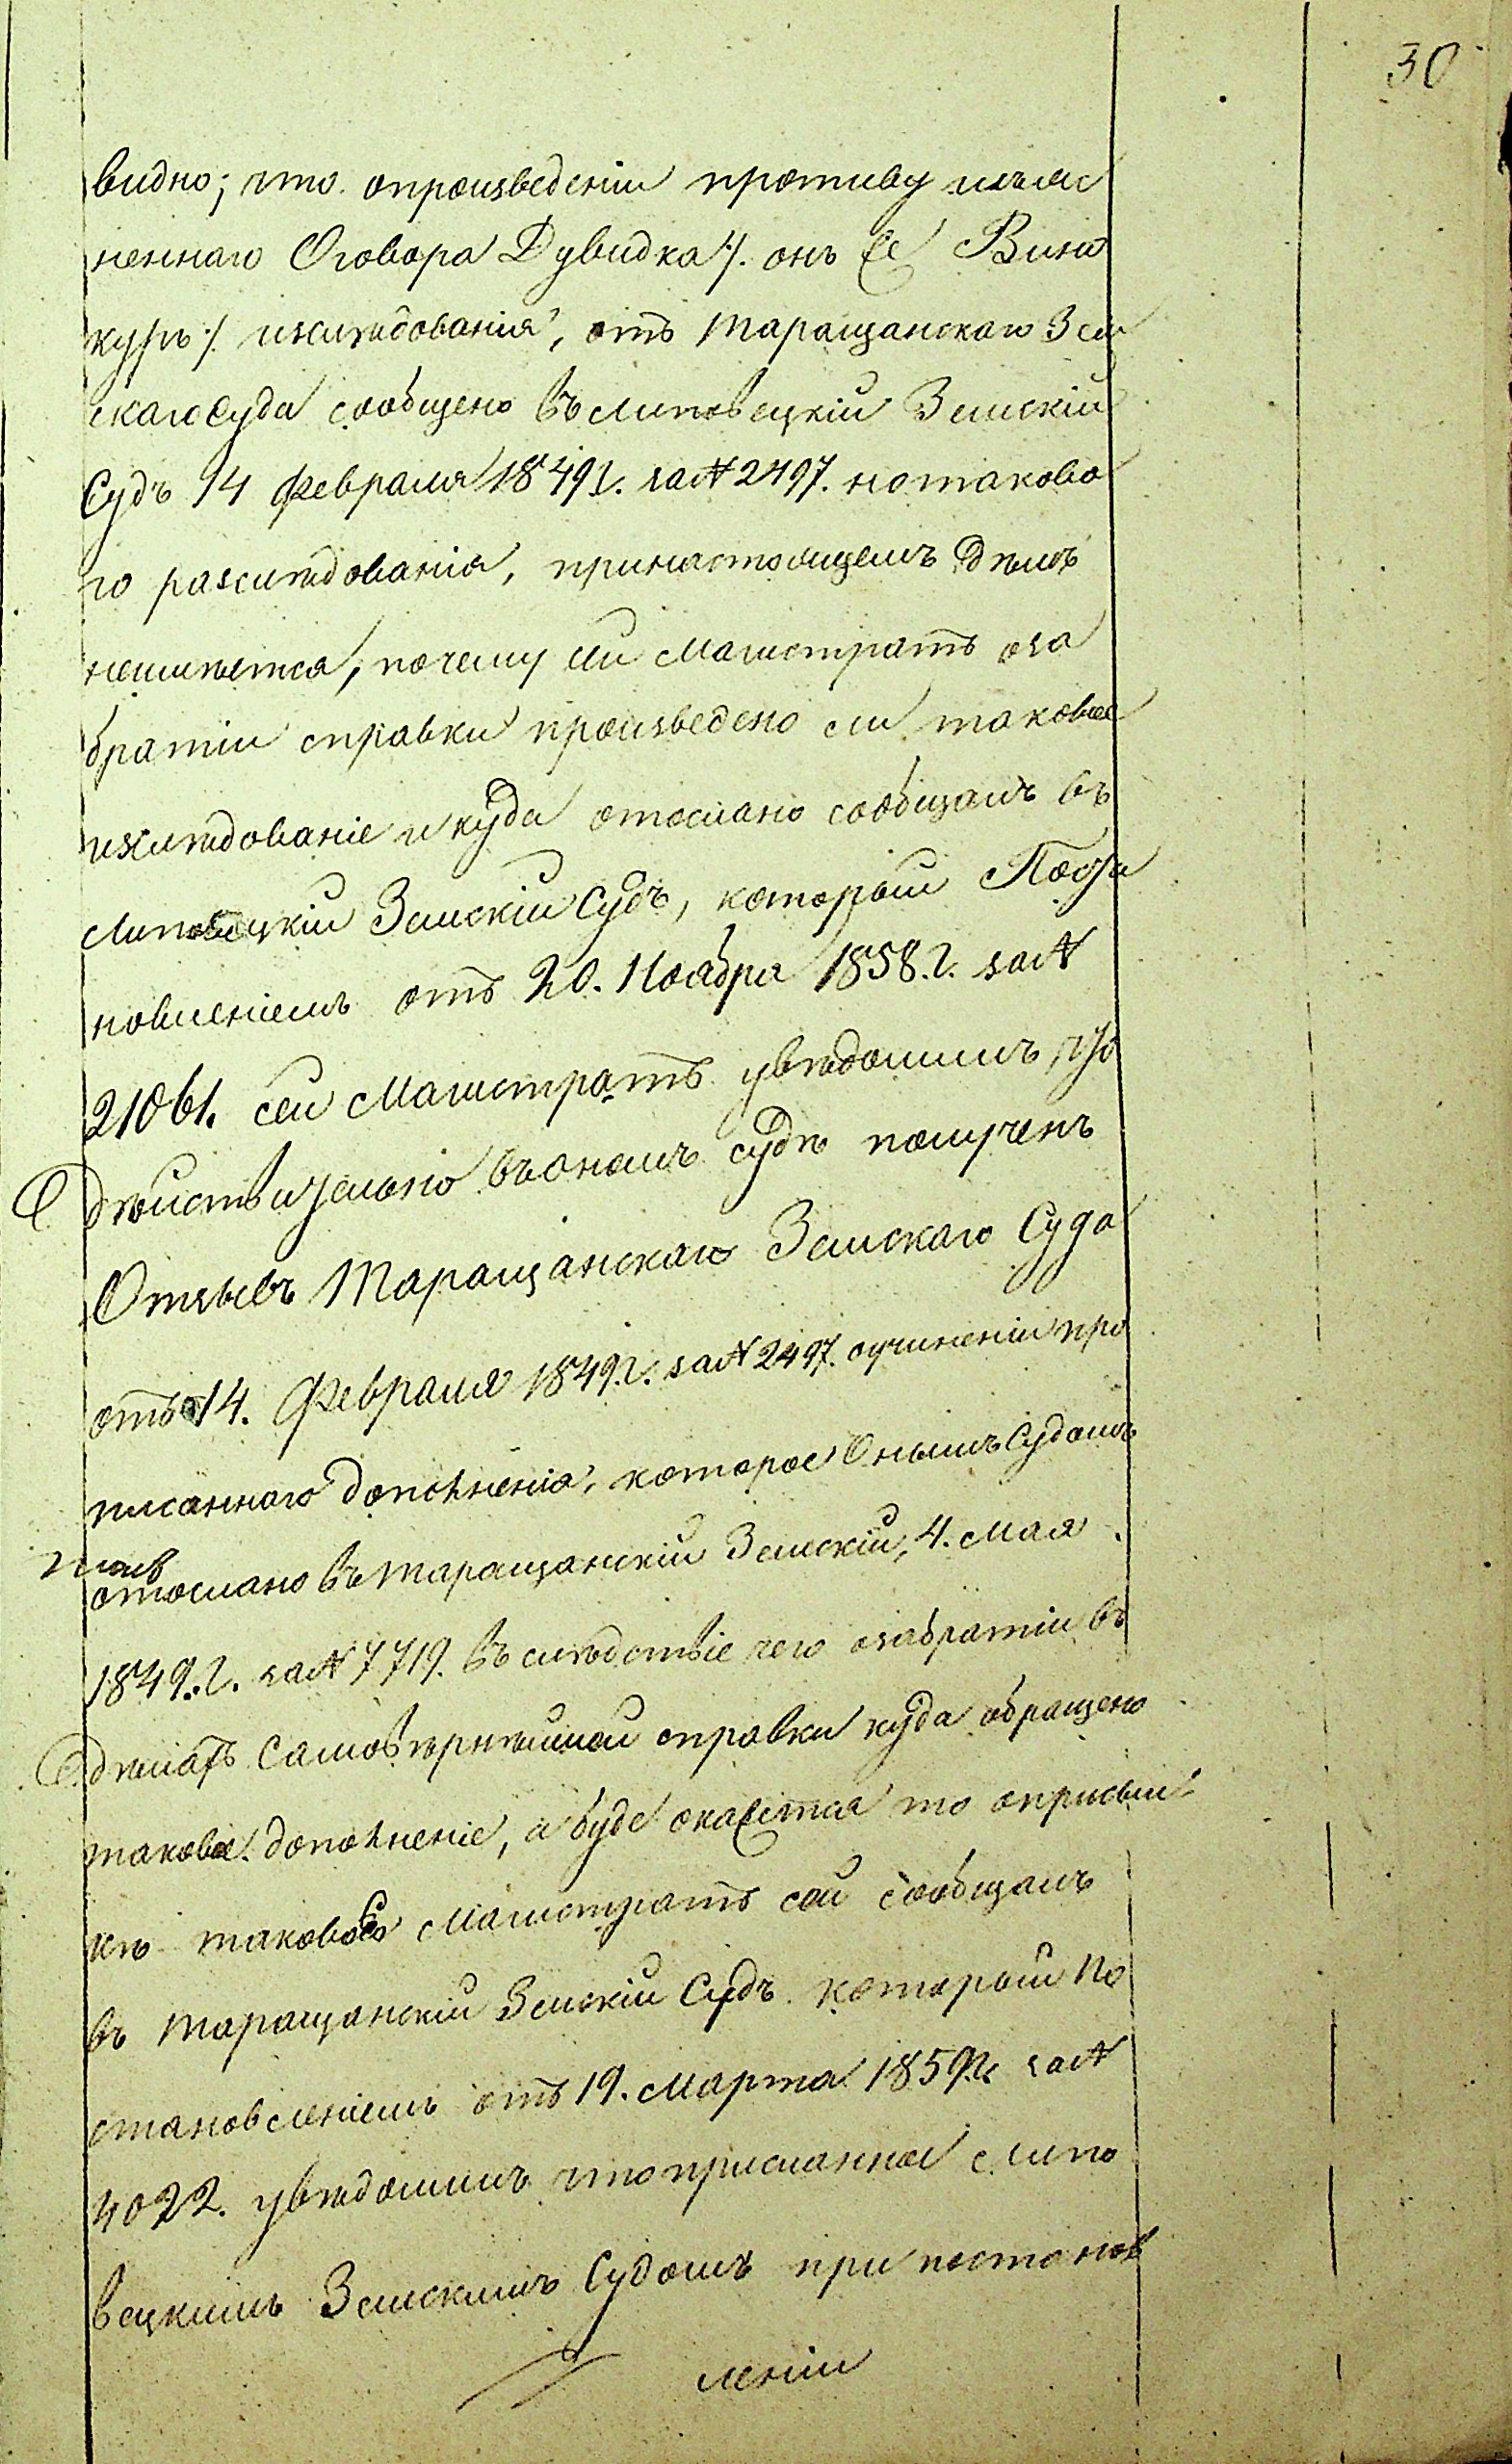 30
видно; что опроизведеніи противу изъяс
неннаго Оговора Дувидка /: онъ же Вино
куръ :/ изслѣдованія, отъ Таращанскаго Зем
скаго Суда сообщено въ Липовецкій Земскій
Судъ 14 Февраля 1849 г. за № 2497. но таково
го разслѣдованія, принастоящемъ дѣлѣ
неимѣется, почему сей Магистратъ оза
братіи справки произведено ли таковое
изслѣдованіе и куда отослано сообщалъ въ
Липовецкій Земскій Судъ, который Поста
новленіемъ отъ 20. Ноября 1858. г. за №
21061. сей Магистратъ увѣдомилъ, что
дѣйствительно въ ономъ судѣ полученъ
Отзывъ Таращанскаго Земскаго Суда
отъ 14. Февраля 1849. г. за № 2497. оучиненіи про
писаннаго дополненія, которое Онымъ Судомъ
отослано въ Таращанскій Земскій, 4. Мая
1849. г. за № 7719. Въ слѣдствіе чего озабратіи въ
дѣлахъ Самовѣрнѣйшей справки куда обращено
таковое дополненіе, а буде окажется то оприсыл
кѣ таковаго Магистратъ сей сообщалъ
въ Таращанскій Земскій Судъ который По
становленіемъ отъ 19. Марта 1859 г. за №
4022. увѣдомилъ что присланное Липо
вецкимъ Земскимъ Судомъ при постанов
леніи